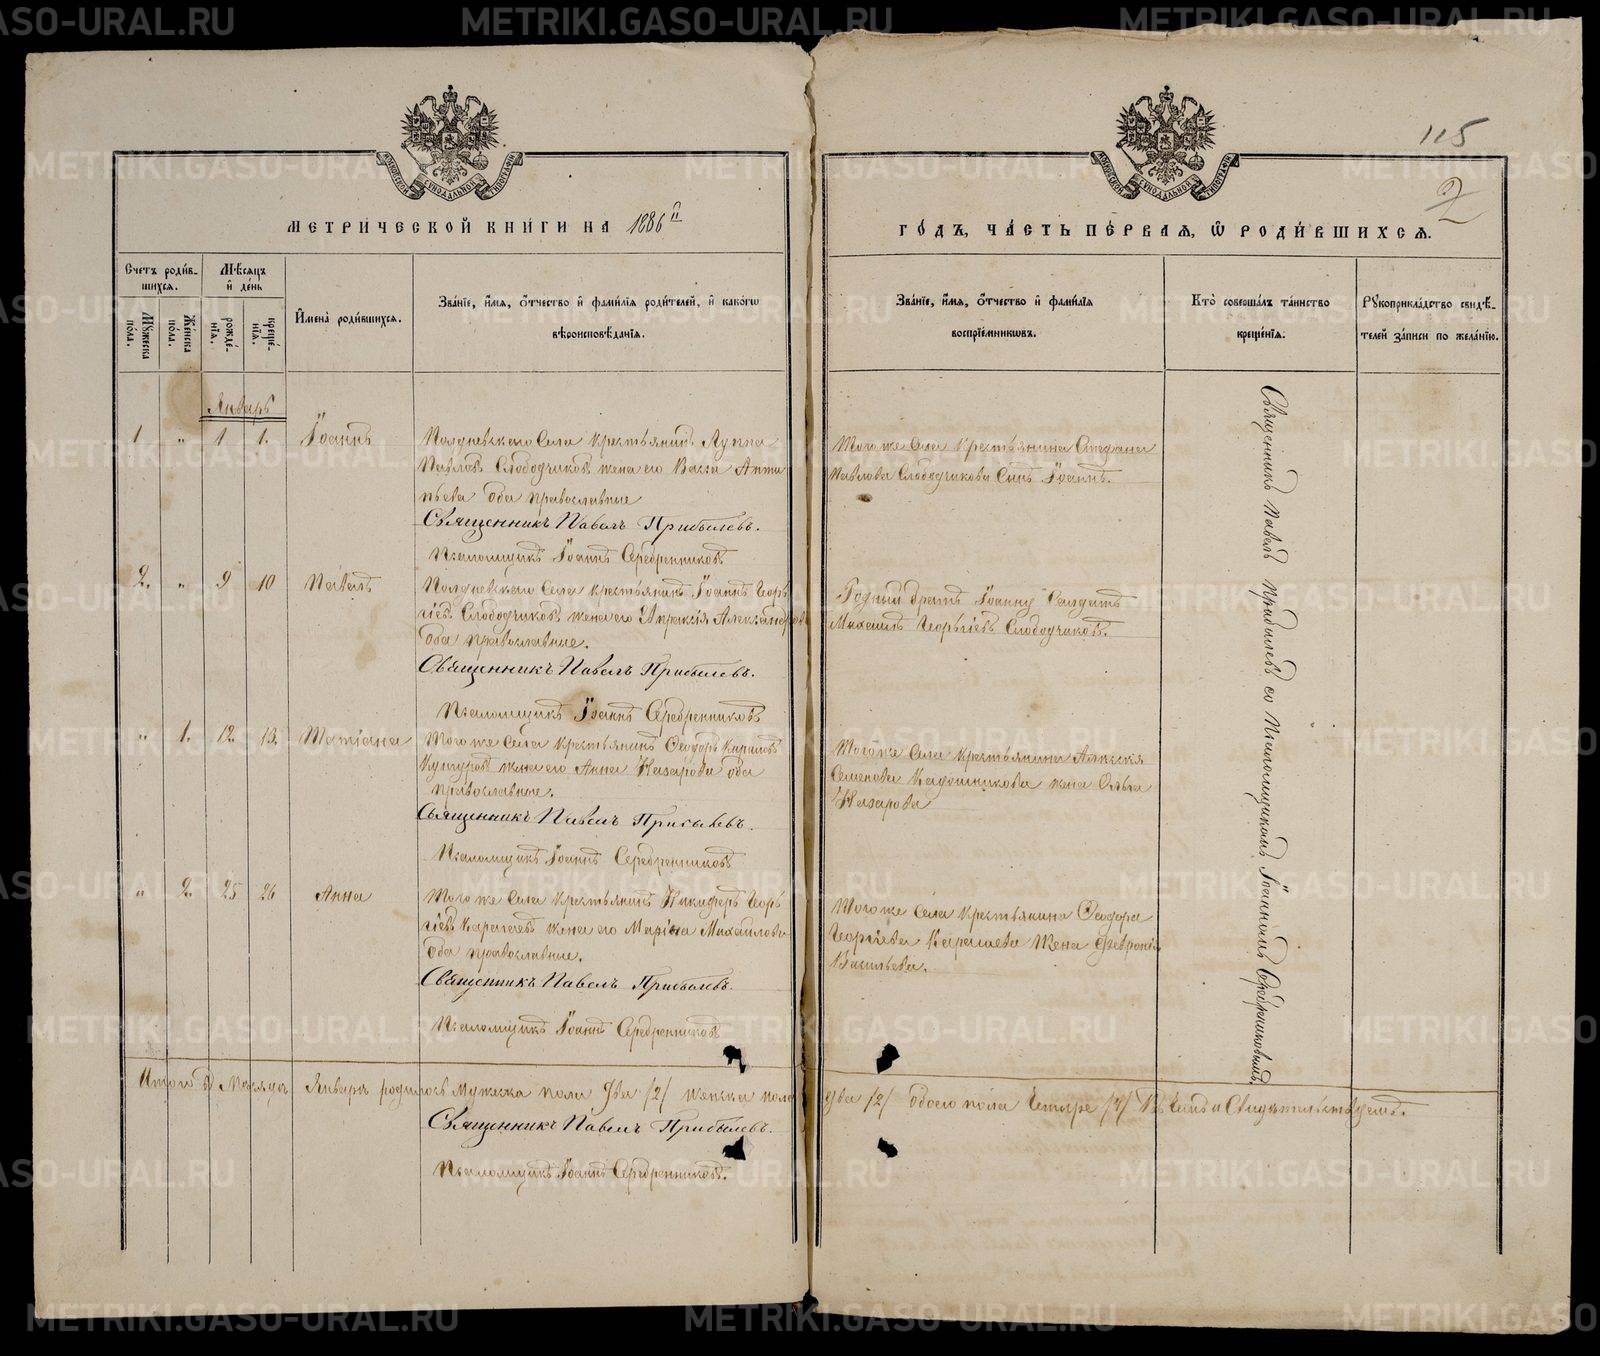 115
2
МОСКОВСКОЙ СѴНОДАЛЬНОЙ ТИПОГРАФІИ
МОСКОВСКОЙ СѴНОДАЛЬНОЙ ТИПОГРАФІИ
МЕТРИЧЕСКОЙ КНИГИ НА 1886й
ГОДЪ, ЧАСТЬ ПЕРВАЯ, Ѡ РОДИВШИХСЯ.
Счетъ родив-
шихся.
Мужеска пола.
Женска пола.
Мѣсяцъ и день
рожде-нія.
креще-нія.
Имена родившихся.
Званіе, имя, отчество и фамилія родителей, и какогѡ
вѣроисповѣданія.
Званіе, имя, отчество и фамилія
воспріемниковъ.
Кто совершалъ таинство
крещенія.
Рукоприкладство свидѣ-
телей записи по желанію.
Январь
1. " 1 1. Іоаннъ
Полдневскаго Села крестьянинъ Луппа
Павловъ Слободчиковъ жена его Васса Анти
пьева оба православные
Священникъ Павелъ Прибылевъ.
Псаломщикъ Іоаннъ Серебренниковъ
Тогоже Села Крестьянина Стефана
Павлова Слободчикова Сынъ Іоаннъ.
2. " 9 10 Павелъ
Полдневскаго Села крестьянинъ Іоаннъ Геор
гіевъ Слободчиковъ жена его Апраксія Александрова
Оба православные.
Священникъ Павелъ Прибылевъ.
Псаломщикъ Іоаннъ Серебренниковъ
Родный братъ Іоанну Солдатъ
Михаилъ Георгіевъ Слободчиковъ.
" 1. 12. 13. Татіана
Тогоже Села крестьянинъ Ѳеодоръ Кириловъ
жена его Анна Назарова оба
православные.
Священникъ Павелъ Прибылевъ.
Псаломщикъ Іоаннъ Серебренниковъ
Тогоже Села крестьянина Алексія
Семенова жена Ольга
Назарова
" 2. 25 26 Анна
Тогоже Села крестьянинъ Никифоръ Геор
гіевъ Карагаевъ жена его Марія Михайлова
Оба православные.
Священникъ Павелъ Прибылевъ.
Псаломщикъ Іоаннъ Серебренниковъ
Тогоже Села крестьянина Ѳеодора
Георгіева жена Февронія
Васильева.
Священникъ Павелъ Прибылевъ со Псаломщикомъ Іоанномъ Серебренниковымъ
Итого въ Мѣсяцѣ Январѣ родилось Мужска пола два /2/ женска пола два /2/ обоего пола Четыре /4/ Въ Чемъ и Свидѣтельствуемъ.
Священникъ Павелъ Прибылевъ.
Псаломщикъ Іоаннъ Серебренниковъ.
METRIKI.GASO-URAL.RU